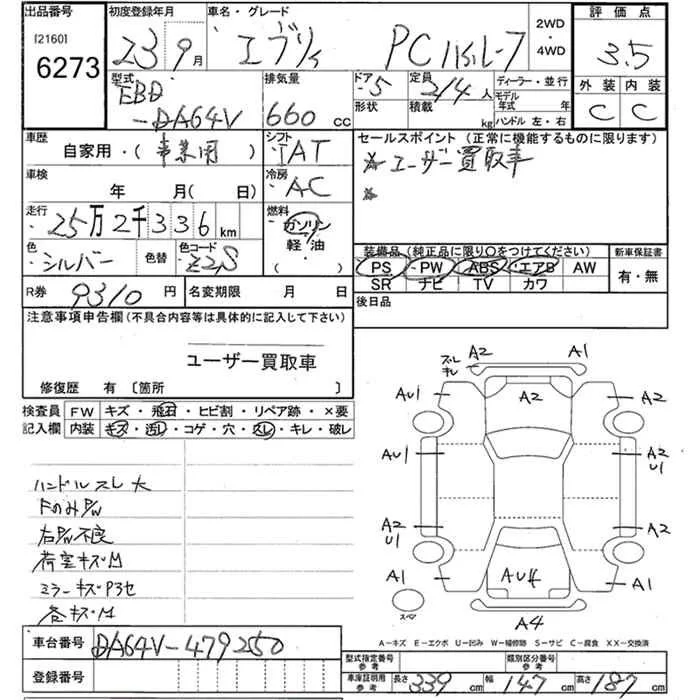 出品番号 初度登録年月 車名・グレード 2WD・4WD 評価点
[2160] 6273 23 9月 エブリィ PC ハイルーフ 3.5
型式 EBD-DA64V
排気量 660 CC
ドア 5 形状
定員 2/4人 積載 kg
ディーラー・並行
モデル年式 年
ハンドル 左・右
外装 内装
C C
車歴 自家用・(事業用)
シフト IAT
セールスポイント (正常に機能するものに限ります)
ユーザー買取車
車検 年 月( 日)
冷房 AC
走行 25万2千336km
燃料 ガソリン 軽油 ( )
色 シルバー 色替 色コード Z2S
装備品(純正品に限り○をつけてください) 新車保証書
PS PW ABS エアB AW 有・無
SR ナビ TV カワ
R券 9310円 名変期限 月 日
後日品
注意事項申告欄(不具合内容等は具体的に記入して下さい)
ユーザー買取車
修復歴 有〔箇所 〕
検査員記入欄 FW キズ・飛石・ヒビ割・リペア跡・×要
内装 キズ・汚れ・コゲ・穴・スレ・キレ・破レ
ハンドルスレ大
FのみP/W
右P/W不良
荷室キズM
ミラーキズP3セ
各キズM
ズレ キレ A2 A1
AU1 A2 A2
AU1 A2 U1
A2 U1 A2
A1 AU4 A1
スペア A4
A−キズ E−エクボ U−凹み W−補修跡 S−サビ C−腐食 XX−交換済
車台番号 DA64V-479250
登録番号
型式指定番号 参考 類別区分番号 参考
車庫証明用 参考 長さ 339cm 幅 147cm 高さ 187cm